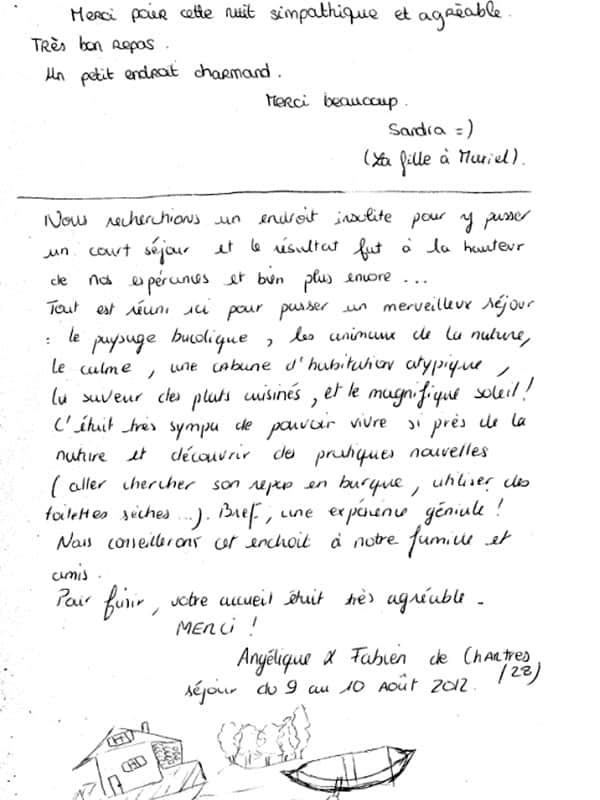 Merci pour cette nuit simpathique et agréable.
Très bon repas.
Un petit endroit charmand.
Merci beaucoup.
Sandra =)
(La fille à Muriel).
Nous recherchions un endroit insolite pour y passer
un court séjour et le résultat fut à la hauteur
de nos espérances et bien plus encore ...
Tout est réuni ici pour passer un merveilleux séjour
: le paysage bucolique, les animaux de la nature,
le calme, une cabane d'habitation atypique,
la saveur des plats cuisinés, et le magnifique soleil !
C'était très sympa de pouvoir vivre si près de la
nature et découvrir des pratiques nouvelles
(aller chercher son repas en barque, utiliser des
toilettes sèches ...). Bref, une expérience géniale !
Nous conseillerons cet endroit à notre famille et
amis.
Pour finir, votre accueil était très agréable.
MERCI !
Angélique & Fabien de Chartres
(28)
séjour du 9 au 10 Août 2012.